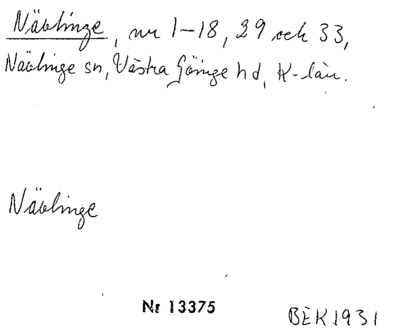 Nävlinge, nr 1-18, 29 och 33,
Nävlinge sn, Västra Göinge hd, K-län.
Nävlinge
Nr 13375
BEK 1931